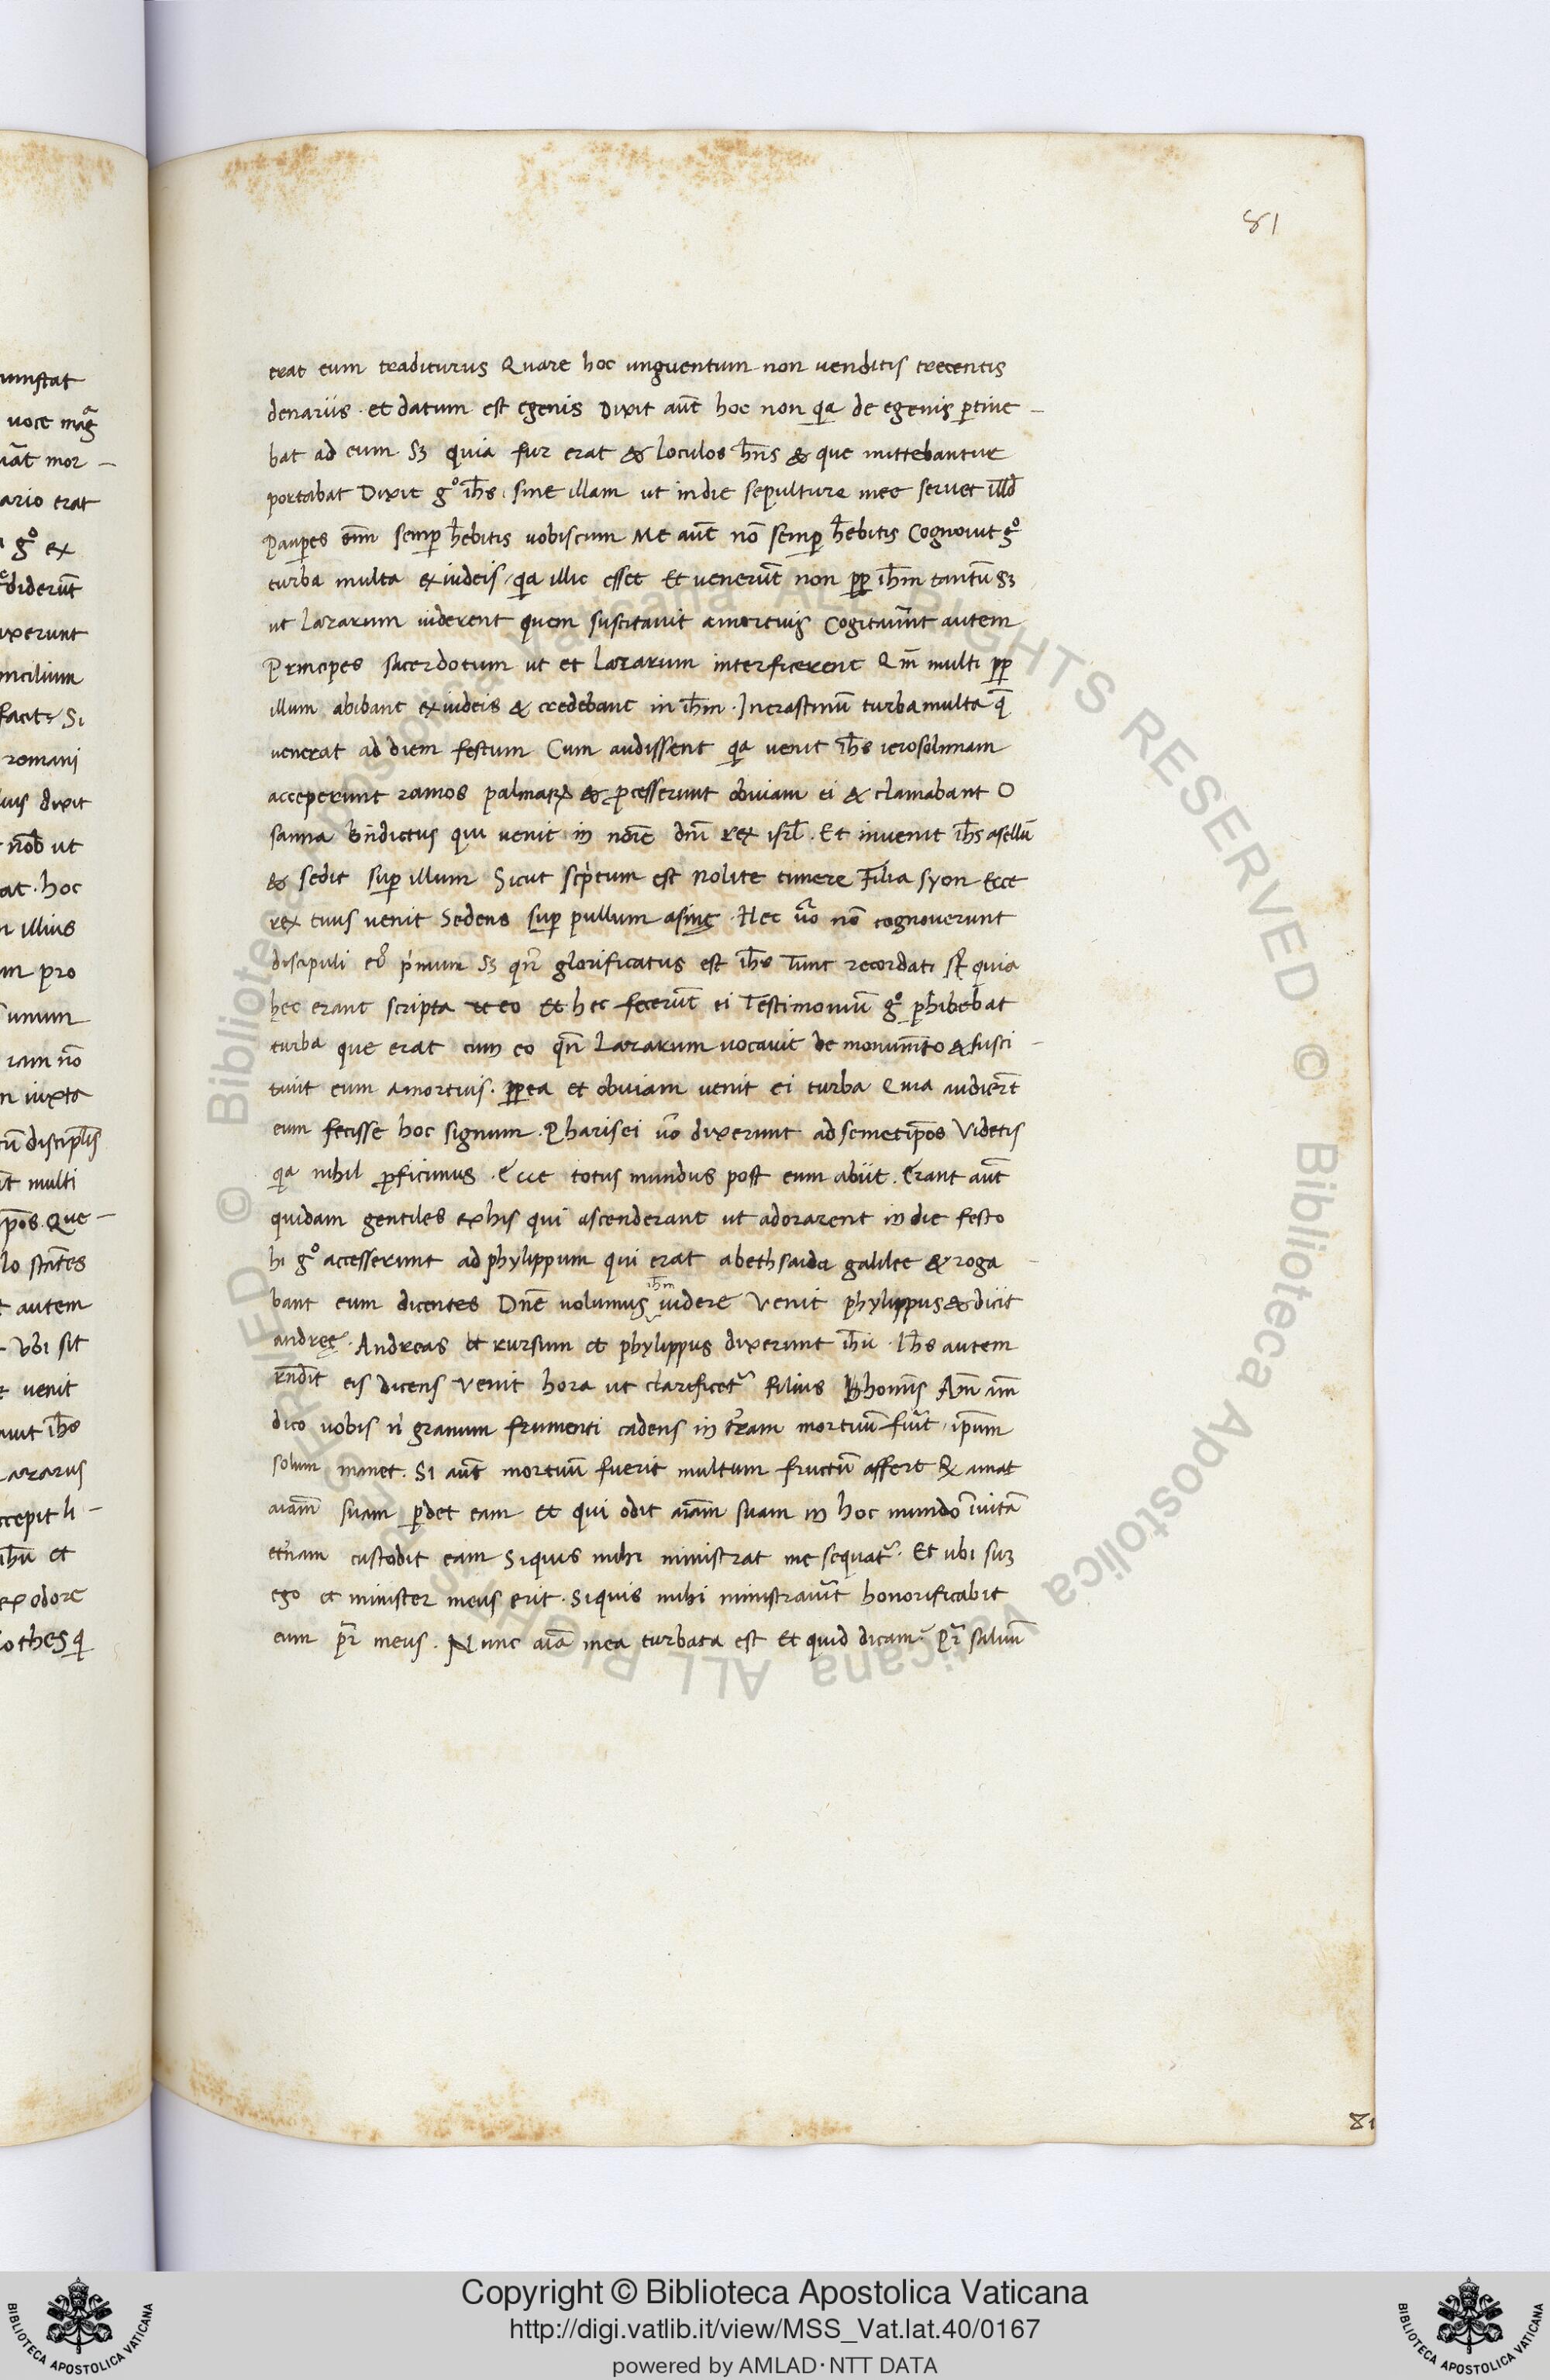 81
erat eum traditurus Quare hoc unguentum non venditis trecentis
denariis · et datum est egenis Dixit aūt hoc non qa de egenis ꝑtine –
bat ad eum Sꝫ quia fur erat & loculos hn̄s & que mittebantur
portabat Dixit gͦ ih̄s · sine illam ut indie sepulture mee seruet illd̄
Pauꝑes enī semꝑ hēbitis uobiscum Me aūt nō semꝑ hēbitis Cognouit gͦ
turba multa exiudeis / qa illic esset Et uenerūt non ꝓꝑ ih̄m tantū Sꝫ
ut Lazarum uiderent quem suscitauit amortuis Cogitauer̄nt autem
Principes sacerdotum ut et Lazarum interficerent Qm̄ multi ꝓꝑ
illum abibant exiudeis & credebant in ih̄m · Incrastinū turbamulta q̄
uenerat ad diem festum Cum audissent qa uenit ih̄s ierosolimam
acceperunt ramos palmaꝝ & ꝓcesserunt obuiam ei & clamabant O
sanna bn̄dictus qui uenit in noīe dn̄i rex isrl̄ · Et inuenit ih̄s asellū
& sedit suꝑ illum Sicut scptum est Nolite timere Filia syon Ecce
rex tuus uenit Sedens suꝑ pullum asinę · Hec uo nō cognouerunt
discipuli eꝰ pmum Sꝫ qn̄ glorificatus est ih̄s Tunc recordati st quia
hęc erant scripta de eo Et hec fecerūt ei Testimoniū gͦ ꝑhibebat
turba que erat cum eo qn̄ Lazarum uocauit de monumēto & susci –
tauit eum amortuis · ꝓꝑea et obuiam uenit ei turba Quia audierūt
eum fecisse hoc signum · Pharisei uō dixerunt ad semetip̄os Videtis
qa nihil ꝓficimus · Ecce totus mundus post eum abiit · Erant aūt
quidam gentiles exhis qui ascenderant ut adorarent in die festo
hi gͦ accesserunt ad phylippum qui erat abethsaida galilee & roga –
bant eum dicentes Dn̄e uolumus ih̄m uidere Venit phylippus & dicit
andręę · Andreas et rursum et phylippus dixerunt ih̄u · Ih̄s autem
rn̄dit eis dicens Venit hora ut clarificetᷣ filius hominis Am̄ am̄
dico uobis ni granum frumenti cadens in terram mortuū fuit · ip̄um
solum manet · Si aūt mortuū fuerit multum fructū affert Q amat
aīam suam ꝑdet eam Et qui odit aīam suam in hoc mundo īuitā
et̄nam custodit eam Siquis mihi ministrat me sequatᷣ · Et ubi suꝫ
ego et minister meus erit · Siquis mihi ministrauit honorificabit
eum pr̄ meus · Nunc aīa mea turbata est Et quid dicam? Pr̄
81
Copyright © Biblioteca Apostolica Vaticana
http://digi.vatlib.it/view/MSS_Vat.lat.40/0167
powered by AMLAD·NTT DATA
BIBLIOTECA APOSTOLICA VATICANA
BIBLIOTECA APOSTOLICA VATICANA